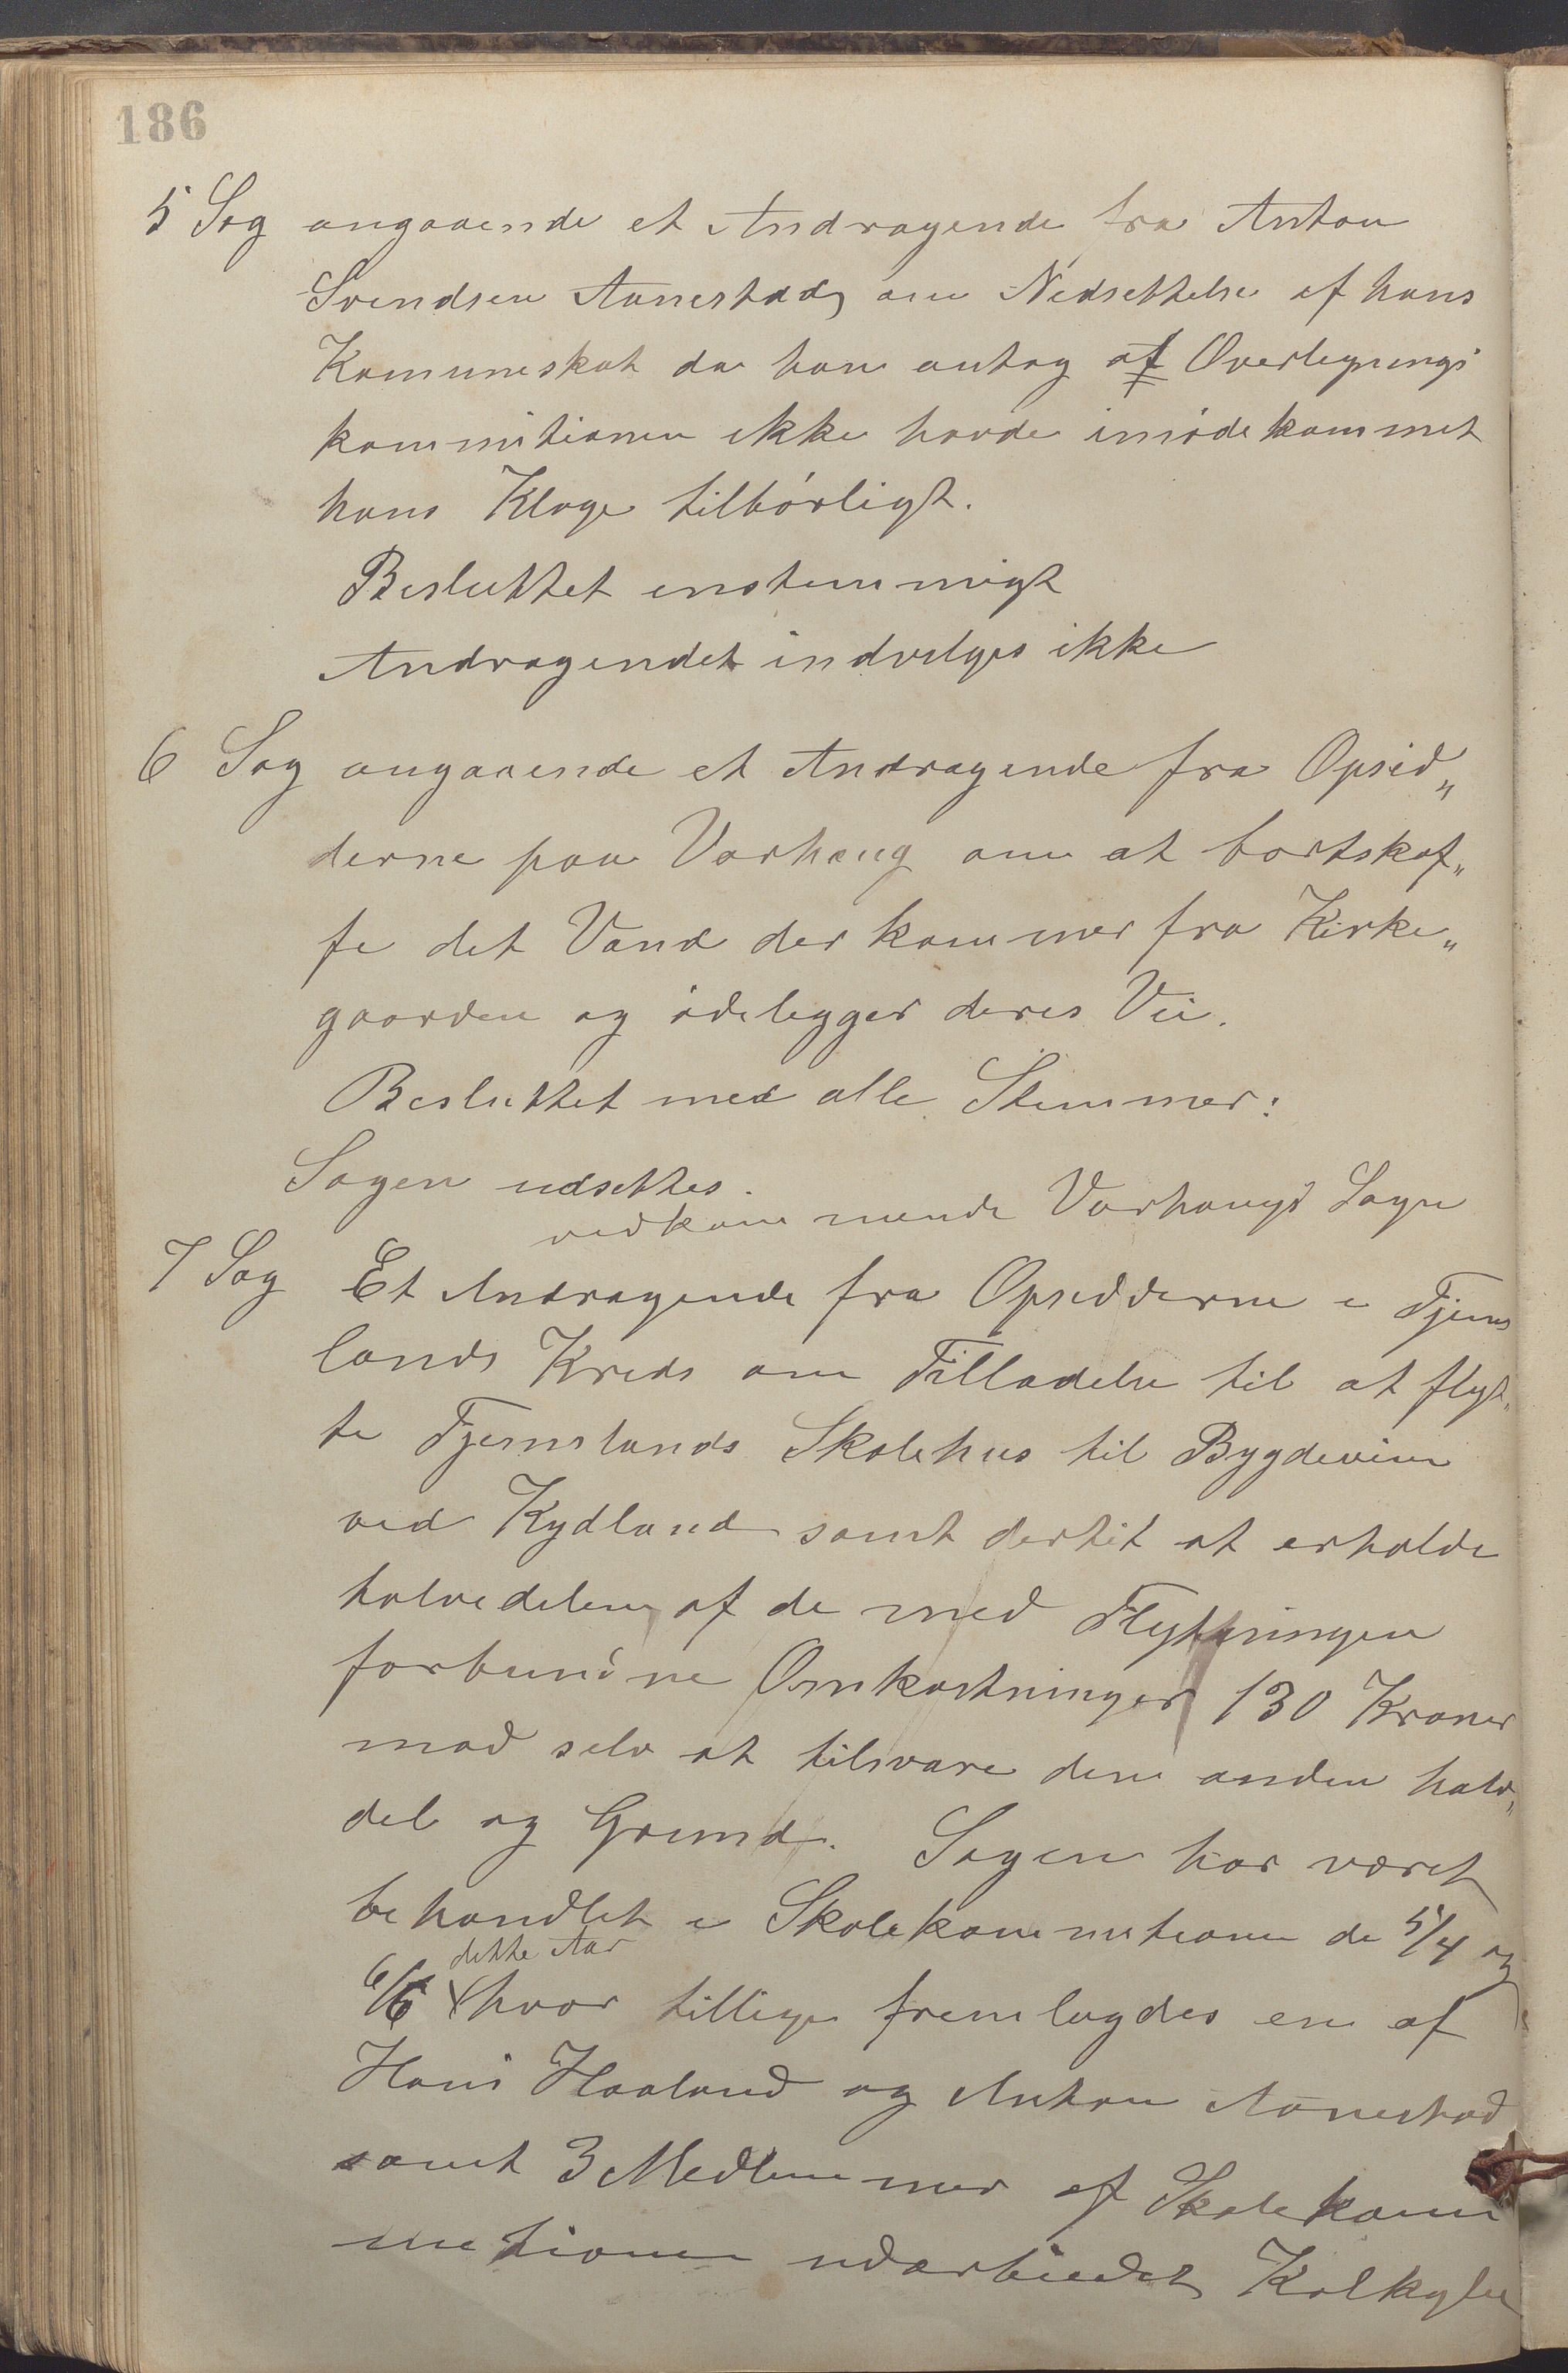 186
5 Sag angaaende et Andragende fra Anton
Svendsen Aanestad, om Nedsettelse af hans
Komuneskat da han antog at Overlignings
kommitionen ikke havde imødekommet
hans Klage tilbørligt.
Besluttet enstemmigt
Andragendet indvilges ikke
6 Sag angaaende et Andragende fra Opsid„
derne paa Varhaug om at bortskaf„
fe det Vand der kommer fra Kirke„
gaarden og ødelegger deres Vei.
Besluttet med alle Stemmer:
Sagen udsettes.
vedkommende Varhaugs Sogn
7 Sag Et Andragende fra Opsidderne i Tjems
lands Kreds om Tilladelse til at flyt„
te Tjemslands Skolehus til Bygdeveien
ved Kydland samt dertil at erholde
halvedelen af de med Flytningen
forbundne Omkostninger 130 Kroner
mod selv at tilsvare den anden halv„
del og Grund. Sagen har været
behandlet i Skolekommitionen de 5/4 og
dette Aar
6/6 hvor tillige fremlagdes en af
Hans Haaland og Anton Aanestad
samt 3 Medlemmer af Skolekom
mitionen udarbeidet Kalkyle